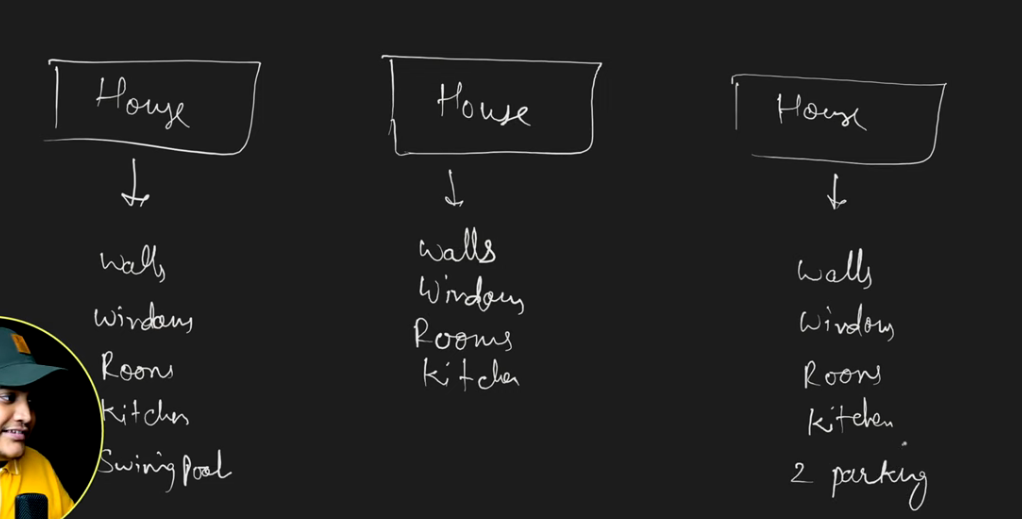 House
walls
windows
Rooms
Kitchen
Swining Pool
House
Walls
Windows
Rooms
Kitchen
House
Walls
Windows
Rooms
Kitchen
2 parking